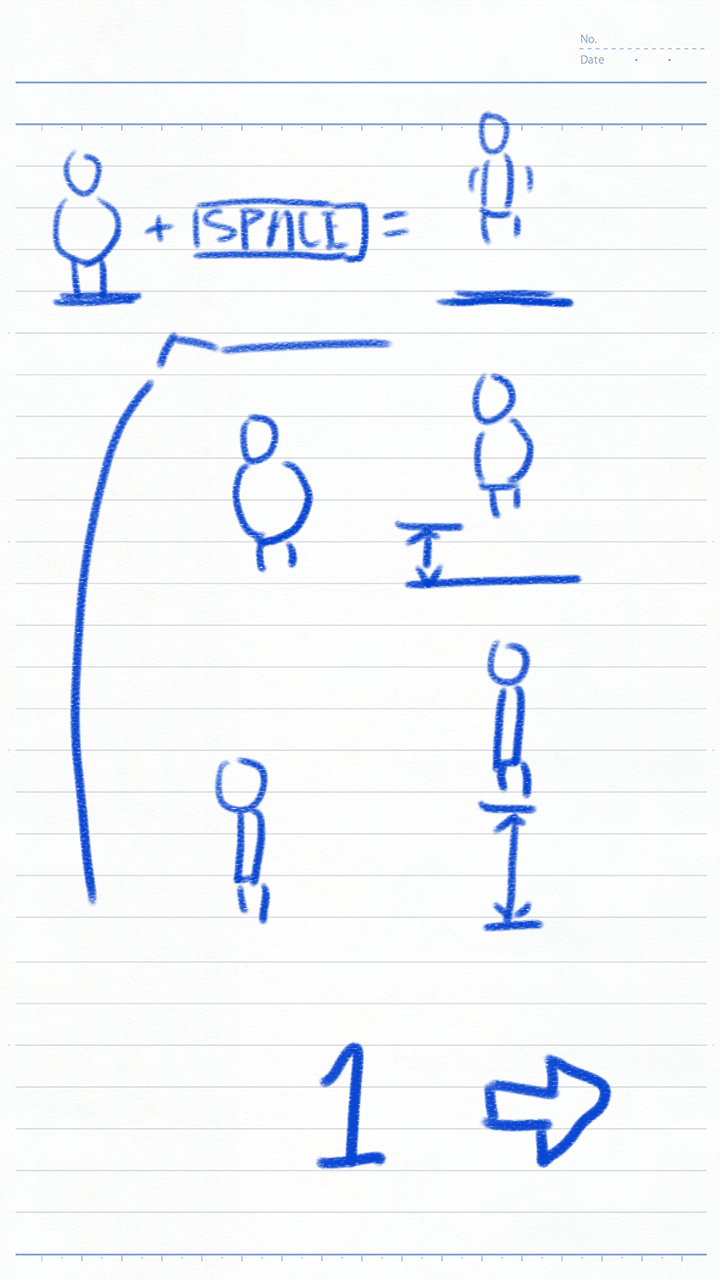 No.
Date
+ SPACE =
1